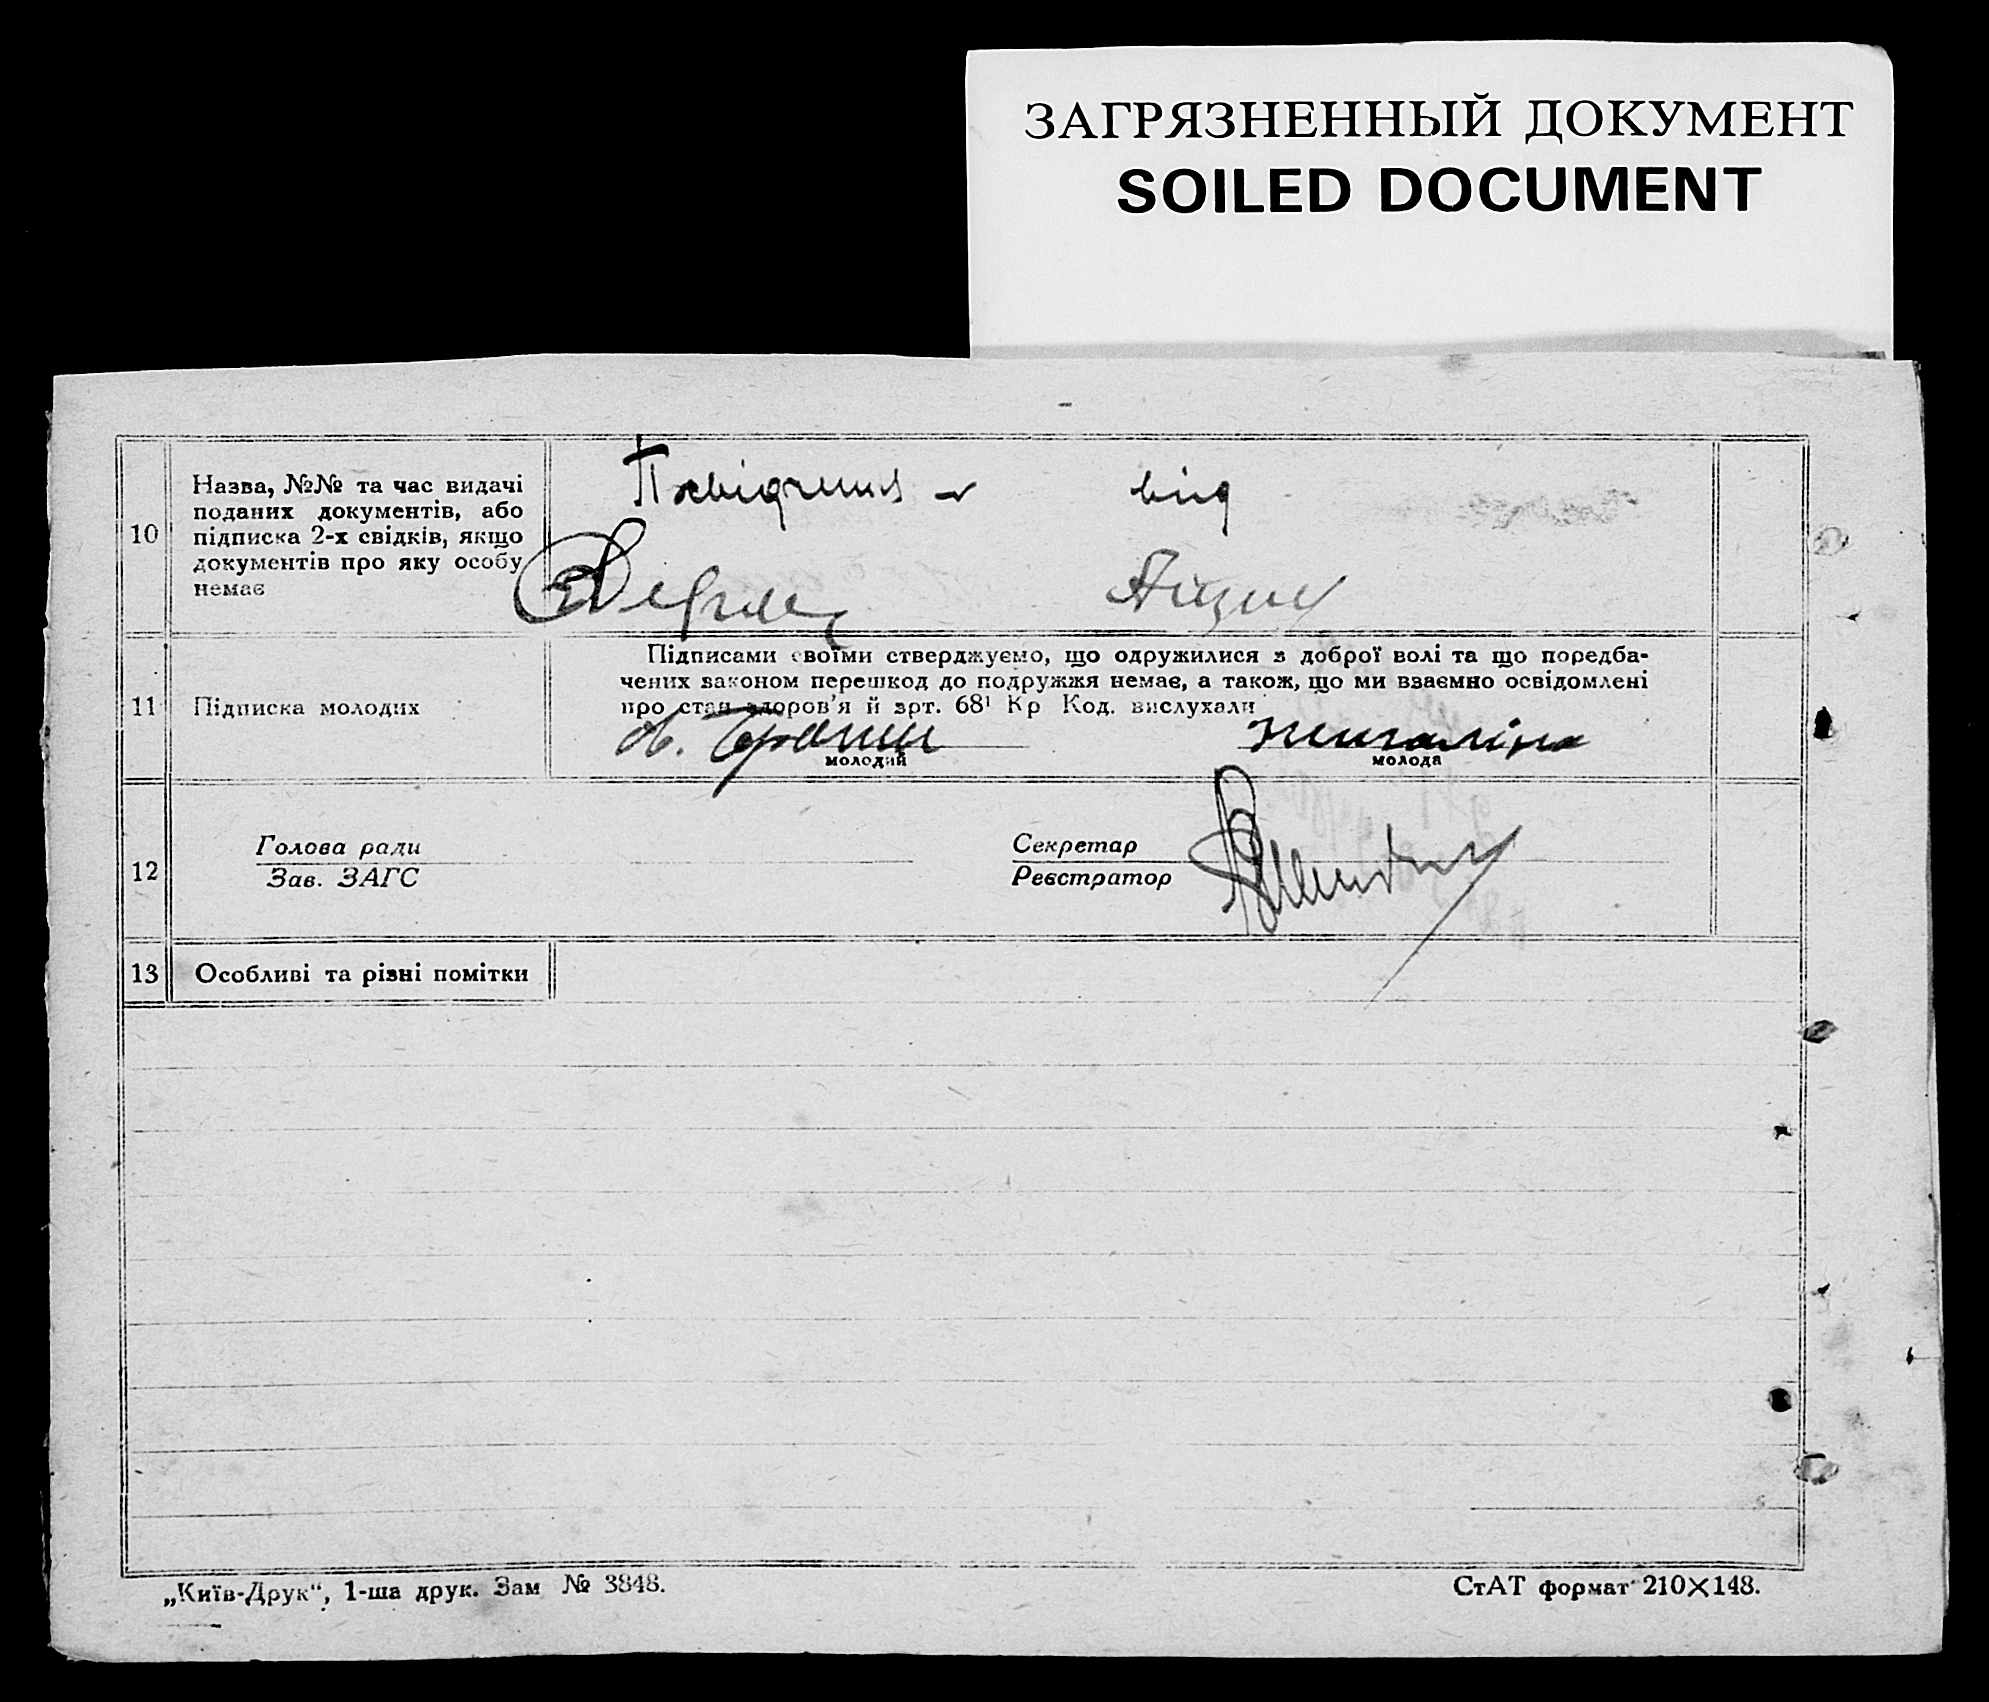 ЗАГРЯЗНЕННЫЙ ДОКУМЕНТ
SOILED DOCUMENT
10
Назва, №№ та час видачі
поданих документів, або
підписка 2-х свідків, якщо
документів про яку особу
немає
від
11
Підписка молодих
Підписами своїми стверджуємо, що одружилися з доброї волі та що поредба-
чених законом перешкод до подружжя немає, а також, що ми взаємно освідомлені
про стан здоров'я й зрт. 68¹ Кр Код. вислухали
молодий
молода
12
Голова ради
Зав. ЗАГС
Секретар
Реєстратор
13
Особливі та різні помітки
„Київ-Друк“, 1-ша друк. Зам № 3848.
СтАТ формат 210×148.